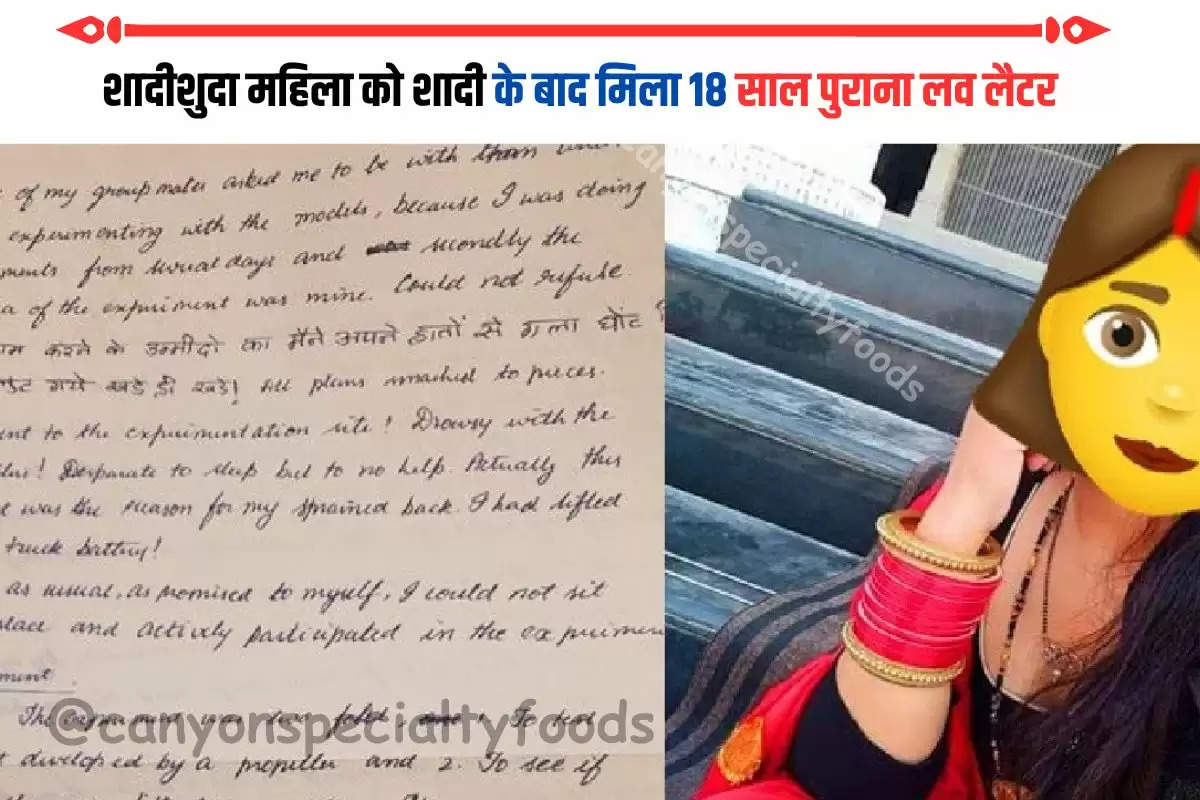 शादीशुदा महिला को शादी के बाद मिला 18 साल पुराना लव लैटर
of my groupmates asked me to be with them
experimenting with the models, because I was doing
ments from several days and secondly the
a of the experiment was mine. Could not refuse
करने के उम्मीदो का मैंने अपने हातों से गला घोंट
गये खडे ही खडे! All plans smashed to pieces.
ent to the experimentation site! Drowsy with the
! Desparate to sleep but to no help. Actually this
was the reason for my sprained back. I had lifted
truck battery!
as usual, as promised to myself, I could not sit
place and actively participated in the experimen
ment
The experiment was two fold, 1. To test
t developed by a propeller and 2. To see if
@canyonspecialtyfoods
canyonspecialtyfoods